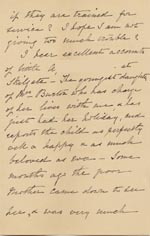 if they are trained for
service? I hope I am not
giving too much trouble?
I hear excellent accounts
of little A at
The youngest daughter
of Mrs Burton who has charge
of her lives with me & has
just had her holiday, and
reports the child as perfectly
happy & as much
beloved as ever — Some
months ago the poor
Mother came down to see
her, & was very much